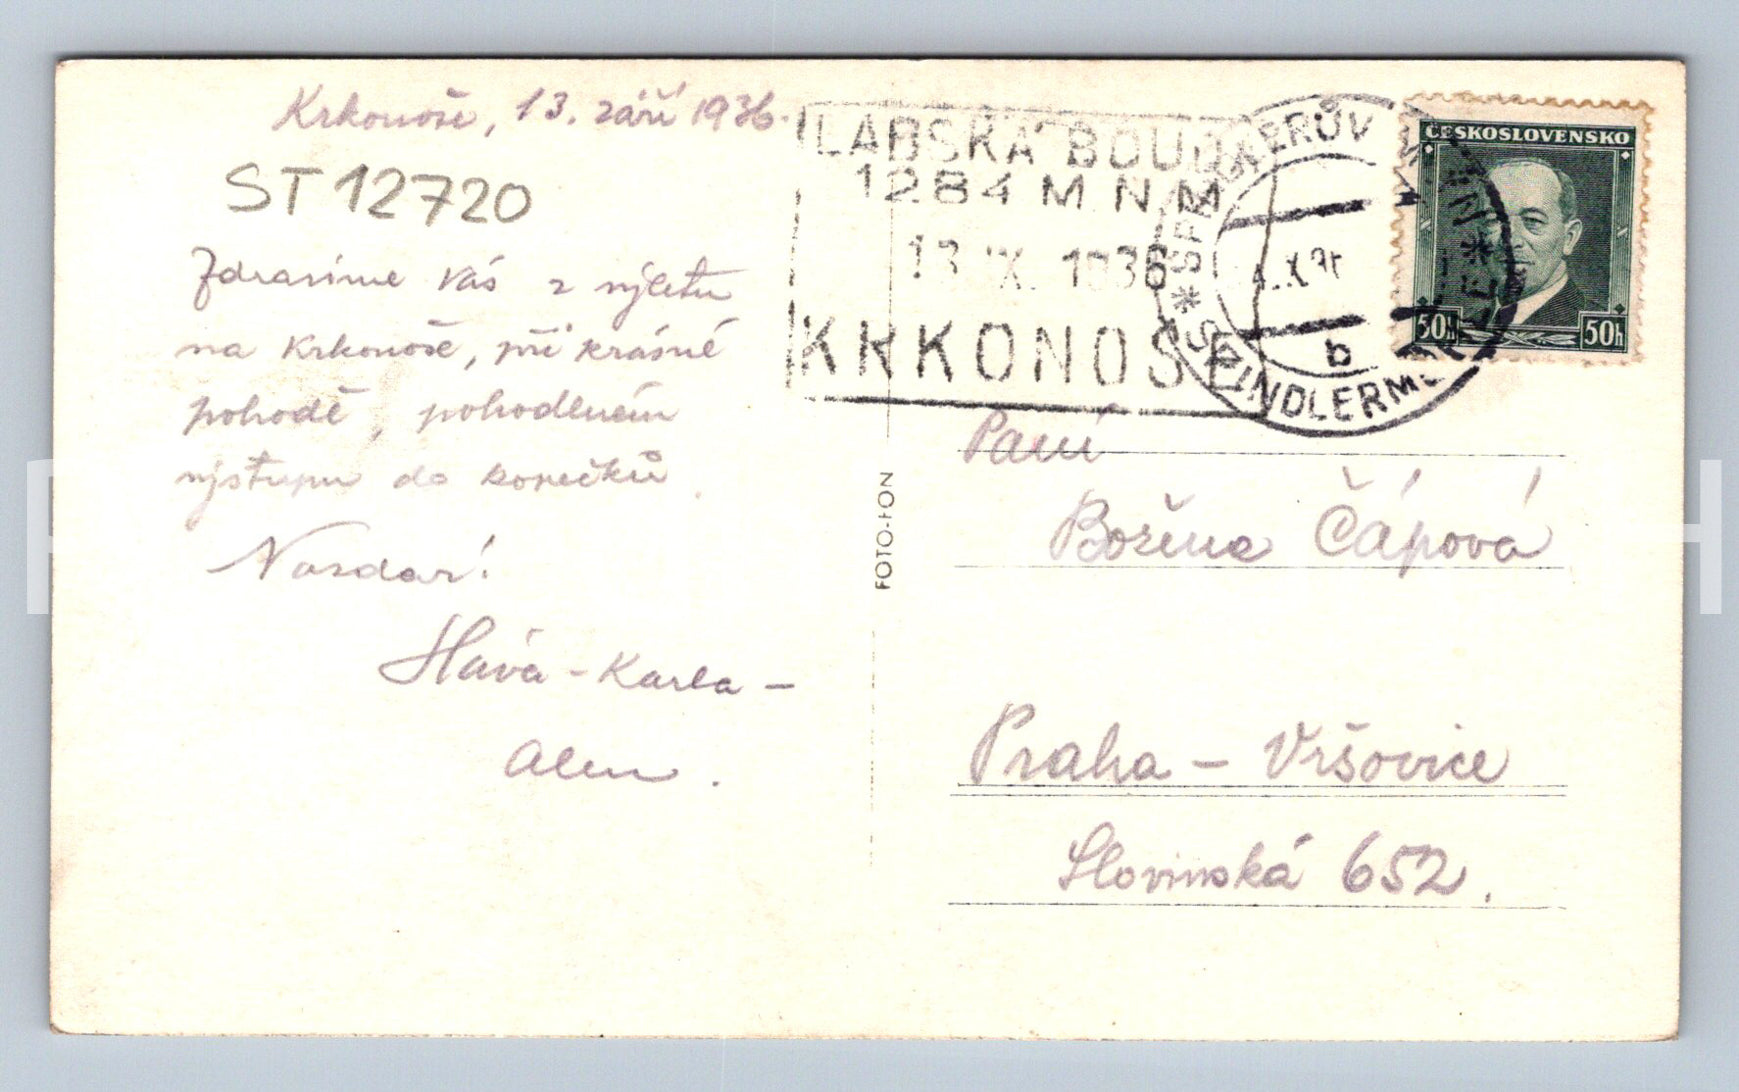 Krkonoše, 13. září 1936.
ST 12720
Zdravíme Vás z výletu
na Krkonoše, při krásné
pohodě, pohodlném
výstupu do kopečků.
Nazdar!
Sláva - Karla -
LABSKÁ BOUDA
1284 M N M
13 IX. 1936
KRKONOŠE
* ŠPINDLERŮV MLÝN *
SPINDLERMÜHLE
b
ČESKOSLOVENSKO
50h 50h
FOTO-FON
Paní
Božena Čápová
Praha - Vršovice
Slovinská 652.